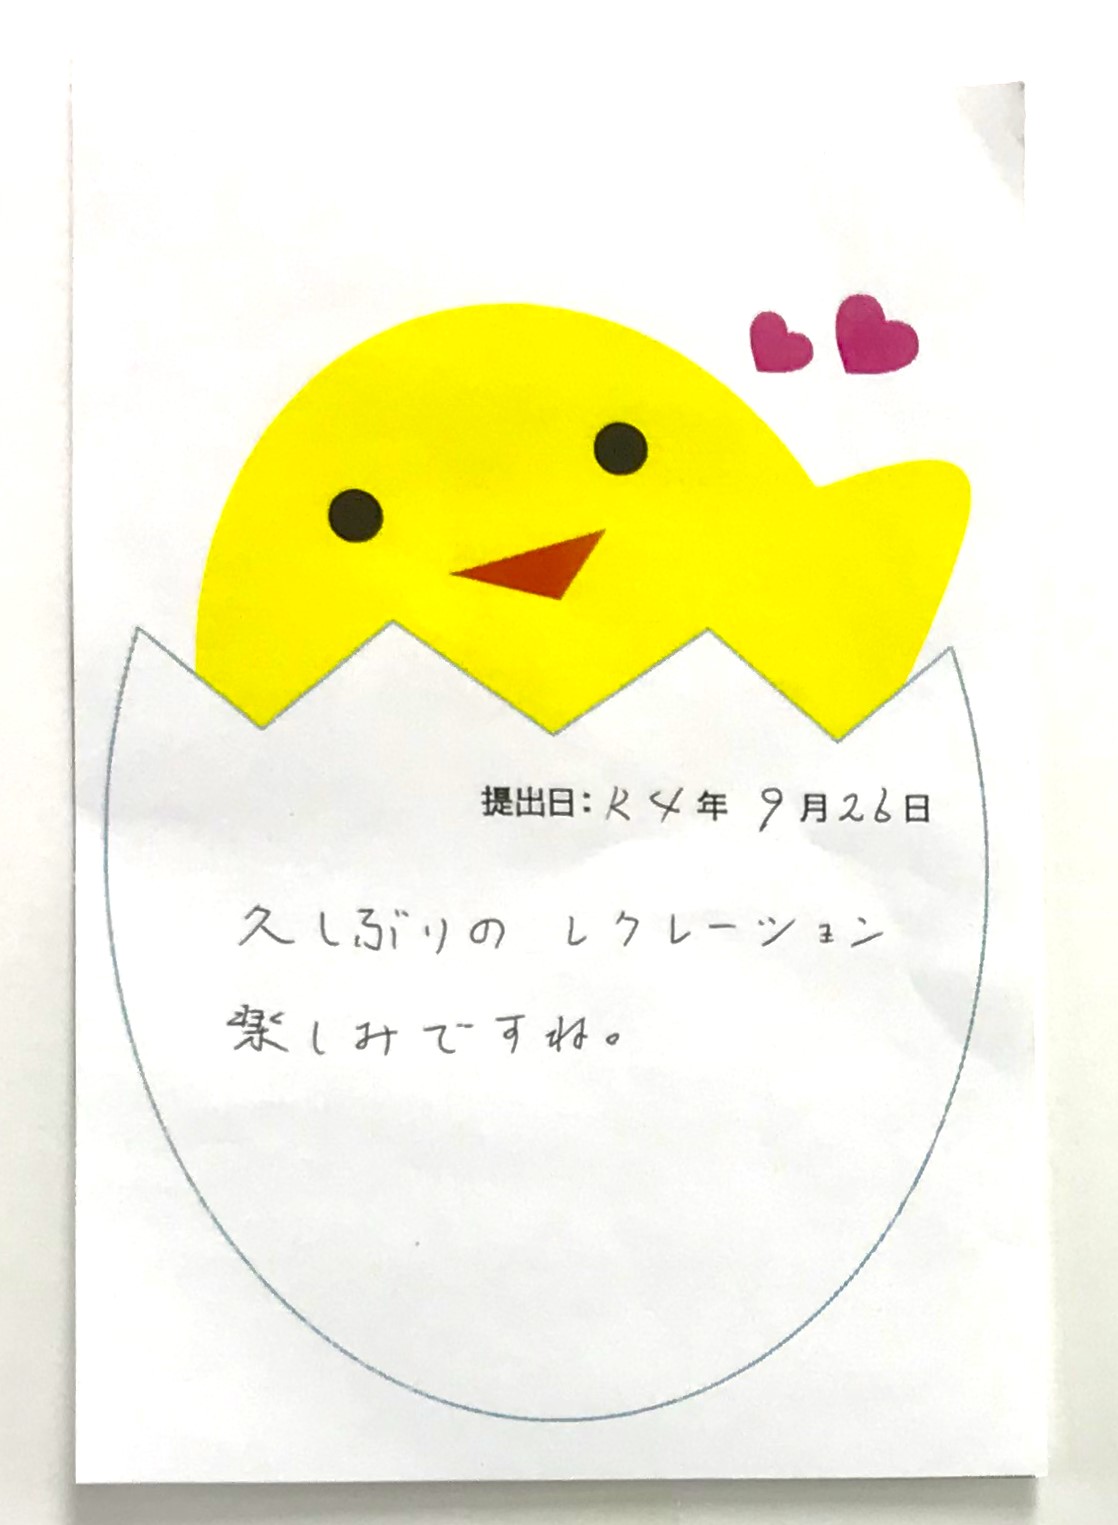 提出日：R4年 9月26日
久しぶりの レクレーション
楽しみですね。